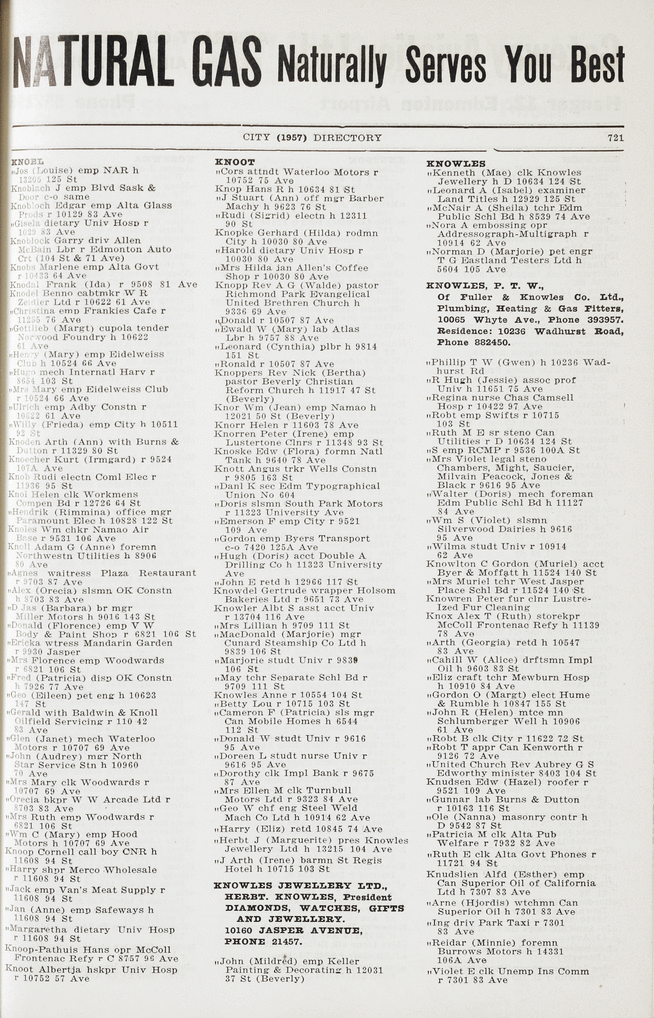 NATURAL GAS Naturally Serves You Best
CITY (1957) DIRECTORY 721
KNOEL
"Jos (Louise) emp NAR h
13205 125 St
Knoblach J emp Blvd Sask &
Door c-o same
Knobloch Edgar emp Alta Glass
Prods r 10129 83 Ave
"Gisela dietary Univ Hosp r
83 Ave
Knoblock Garry driv Allen
McBain Lbr r Edmonton Auto
Crt (104 St & 71 Ave)
Knobs Marlene emp Alta Govt
r 10433 64 Ave
Knodal Frank (Ida) r 9508 81 Ave
Knodel Benno cabtmkr W R
Zeidler Ltd r 10622 61 Ave
"Christina emp Frankies Cafe r
11255 76 Ave
"Gottlieb (Margt) cupola tender
Norwood Foundry h 10622
61 Ave
"Henry (Mary) emp Eidelweiss
Club h 10524 66 Ave
"Hugo mech Internatl Harv r
8654 103 St
"Mrs Mary emp Eidelweiss Club
r 10524 66 Ave
"Ulrich emp Adby Constn r
10622 61 Ave
"Willy (Frieda) emp City h 10511
92 St
Knoden Arth (Ann) with Burns &
Dutton r 11329 80 St
Knoecher Kurt (Irmgard) r 9524
107A Ave
Knob Rudi electn Coml Elec r
11936 95 St
Knol Helen clk Workmens
Compen Bd r 12726 64 St
"Hendrik (Riminna) office mgr
Paramount Elec h 10828 122 St
Knoles Wm chkr Namao Air
Base r 9531 106 Ave
Knoll Adam G (Anne) foremn
Northwestn Utilities h 8906
80 Ave
"Agnes waitress Plaza Restaurant
r 9703 87 Ave
"Alex (Orecia) slsmn OK Constn
h 8703 83 Ave
"D Jas (Barbara) br mgr
Miller Motors h 9016 143 St
"Donald (Florence) emp V W
Body & Paint Shop r 6821 106 St
"Ericka wtress Mandarin Garden
r 9930 Jasper
"Mrs Florence emp Woodwards
r 6821 106 St
"Fred (Patricia) disp OK Constn
h 7926 77 Ave
"Geo (Eileen) pet eng h 10623
147 St
"Gerald with Baldwin & Knoll
Oilfield Servicing r 110 42
83 Ave
"Glen (Janet) mech Waterloo
Motors r 10707 69 Ave
"John (Audrey) mgr North
Star Service Stn h 10960
70 Ave
"Mrs Mary clk Woodwards r
10707 69 Ave
"Orecia bkpr W W Arcade Ltd r
8703 83 Ave
"Mrs Ruth emp Woodwards r
6821 106 St
"Wm C (Mary) emp Hood
Motors h 10707 69 Ave
Knoop Cornell call boy CNR h
11608 94 St
"Harry shpr Merco Wholesale
r 11608 94 St
"Jack emp Van's Meat Supply r
11608 94 St
"Jan (Anne) emp Safeways h
11608 94 St
"Margaretha dietary Univ Hosp
r 11608 94 St
Knoop-Pathuis Hans opr McColl
Frontenac Refy r C 8757 96 Ave
Knoot Albertja hskpr Univ Hosp
r 10752 57 Ave
KNOOT
"Cors attndt Waterloo Motors r
10752 75 Ave
Knop Hans R h 10634 81 St
"J Stuart (Ann) off mgr Barber
Machy h 9623 76 St
"Rudi (Sigrid) electn h 12311
90 St
Knopke Gerhard (Hilda) rodmn
City h 10030 80 Ave
"Harold dietary Univ Hosp r
10030 80 Ave
"Mrs Hilda jan Allen's Coffee
Shop r 10030 80 Ave
Knopp Rev A G (Walde) pastor
Richmond Park Evangelical
United Brethren Church h
9336 69 Ave
"Donald r 10507 87 Ave
"Ewald W (Mary) lab Atlas
Lbr h 9757 88 Ave
"Leonard (Cynthia) plbr h 9814
151 St
"Ronald r 10507 87 Ave
Knoppers Rev Nick (Bertha)
pastor Beverly Christian
Reform Church h 11917 47 St
(Beverly)
Knor Wm (Jean) emp Namao h
12021 50 St (Beverly)
Knorr Helen r 11603 78 Ave
Knorren Peter (Irene) emp
Lustretone Clnrs r 11348 93 St
Knoske Edw (Flora) formn Natl
Tank h 9640 78 Ave
Knott Angus trkr Wells Constn
r 9805 163 St
"Danl K sec Edm Typographical
Union No 604
"Doris slsmn South Park Motors
r 11323 University Ave
"Emerson F emp City r 9521
109 Ave
"Gordon emp Byers Transport
c-o 7420 125A Ave
"Hugh (Doris) acct Double A
Drilling Co h 11323 University
Ave
"John E retd h 12966 117 St
Knowdel Gertrude wrapper Holsom
Bakeries Ltd r 9651 73 Ave
Knowler Albt S asst acct Univ
r 13704 116 Ave
"Mrs Lillian h 9709 111 St
"MacDonald (Marjorie) mgr
Cunard Steamship Co Ltd h
9839 106 St
"Marjorie studt Univ r 9839
106 St
"May tchr Separate Schl Bd r
9709 111 St
Knowles Anne r 10554 104 St
"Betty Lou r 10715 103 St
"Cameron F (Patricia) sls mgr
Can Mobile Homes h 6544
112 St
"Donald W studt Univ r 9616
95 Ave
"Doreen L studt nurse Univ r
9616 95 Ave
"Dorothy clk Impl Bank r 9675
87 Ave
"Mrs Ellen M clk Turnbull
Motors Ltd r 9323 84 Ave
"Geo W chf eng Steel Weld
Mach Co Ltd h 10914 62 Ave
"Harry (Eliz) retd 10845 74 Ave
"Herbt J (Marguerite) pres Knowles
Jewellery Ltd h 13215 104 Ave
"J Arth (Irene) barmn St Regis
Hotel h 10715 103 St
KNOWLES JEWELLERY LTD.,
HERBT. KNOWLES, President
DIAMONDS, WATCHES, GIFTS
AND JEWELLERY.
10160 JASPER AVENUE,
PHONE 21457.
"John (Mildred) emp Keller
Painting & Decorating h 12031
37 St (Beverly)
KNOWLES
"Kenneth (Mae) clk Knowles
Jewellery h D 10634 124 St
"Leonard A (Isabel) examiner
Land Titles h 12929 125 St
"McNair A (Sheila) tchr Edm
Public Schl Bd h 8539 74 Ave
"Nora A embossing opr
Addressograph-Multigraph r
10914 62 Ave
"Norman D (Marjorie) pet engr
T G Eastland Testers Ltd h
5604 105 Ave
KNOWLES, P. T. W.,
Of Fuller & Knowles Co. Ltd.,
Plumbing, Heating & Gas Fitters,
10065 Whyte Ave., Phone 393957.
Residence: 10236 Wadhurst Road,
Phone 882450.
"Phillip T W (Gwen) h 10236 Wad-
hurst Rd
"R Hugh (Jessie) assoc prof
Univ h 11651 75 Ave
"Regina nurse Chas Camsell
Hosp r 10422 97 Ave
"Robt emp Swifts r 10715
103 St
"Ruth M E sr steno Can
Utilities r D 10634 124 St
"S emp RCMP r 9536 100A St
"Mrs Violet legal steno
Chambers, Might, Saucier,
Milvain Peacock, Jones &
Black r 9616 95 Ave
"Walter (Doris) mech foreman
Edm Public Schl Bd h 11127
84 Ave
"Wm S (Violet) slsmn
Silverwood Dairies h 9616
95 Ave
"Wilma studt Univ r 10914
62 Ave
Knowlton C Gordon (Muriel) acct
Byer & Moffatt h 11524 140 St
"Mrs Muriel tchr West Jasper
Place Schl Bd r 11524 140 St
Knowren Peter fur clnr Lustre-
Ized Fur Cleaning
Knox Alex T (Ruth) storekpr
McColl Frontenac Refy h 11139
78 Ave
"Arth (Georgia) retd h 10547
83 Ave
"Cahill W (Alice) drftsmn Impl
Oil h 9603 83 St
"Eliz craft tchr Mewburn Hosp
h 10910 84 Ave
"Gordon O (Margt) elect Hume
& Rumble h 10847 155 St
"John R (Helen) mtce mn
Schlumberger Well h 10906
61 Ave
"Robt B clk City r 11622 72 St
"Robt T appr Can Kenworth r
9126 72 Ave
"United Church Rev Aubrey G S
Edworthy minister 8403 104 St
Knudsen Edw (Hazel) roofer r
9521 109 Ave
"Gunnar lab Burns & Dutton
r 10163 116 St
"Ole (Nanna) masonry contr h
D 9542 87 St
"Patricia M clk Alta Pub
Welfare r 7932 82 Ave
"Ruth E clk Alta Govt Phones r
11721 94 St
Knudslien Alfd (Esther) emp
Can Superior Oil of California
Ltd h 7307 83 Ave
"Arne (Hjordis) wtchmn Can
Superior Oil h 7301 83 Ave
"Ing driv Park Taxi r 7301
83 Ave
"Reidar (Minnie) foremn
Burrows Motors h 14331
106A Ave
"Violet E clk Unemp Ins Comm
r 7301 83 Ave